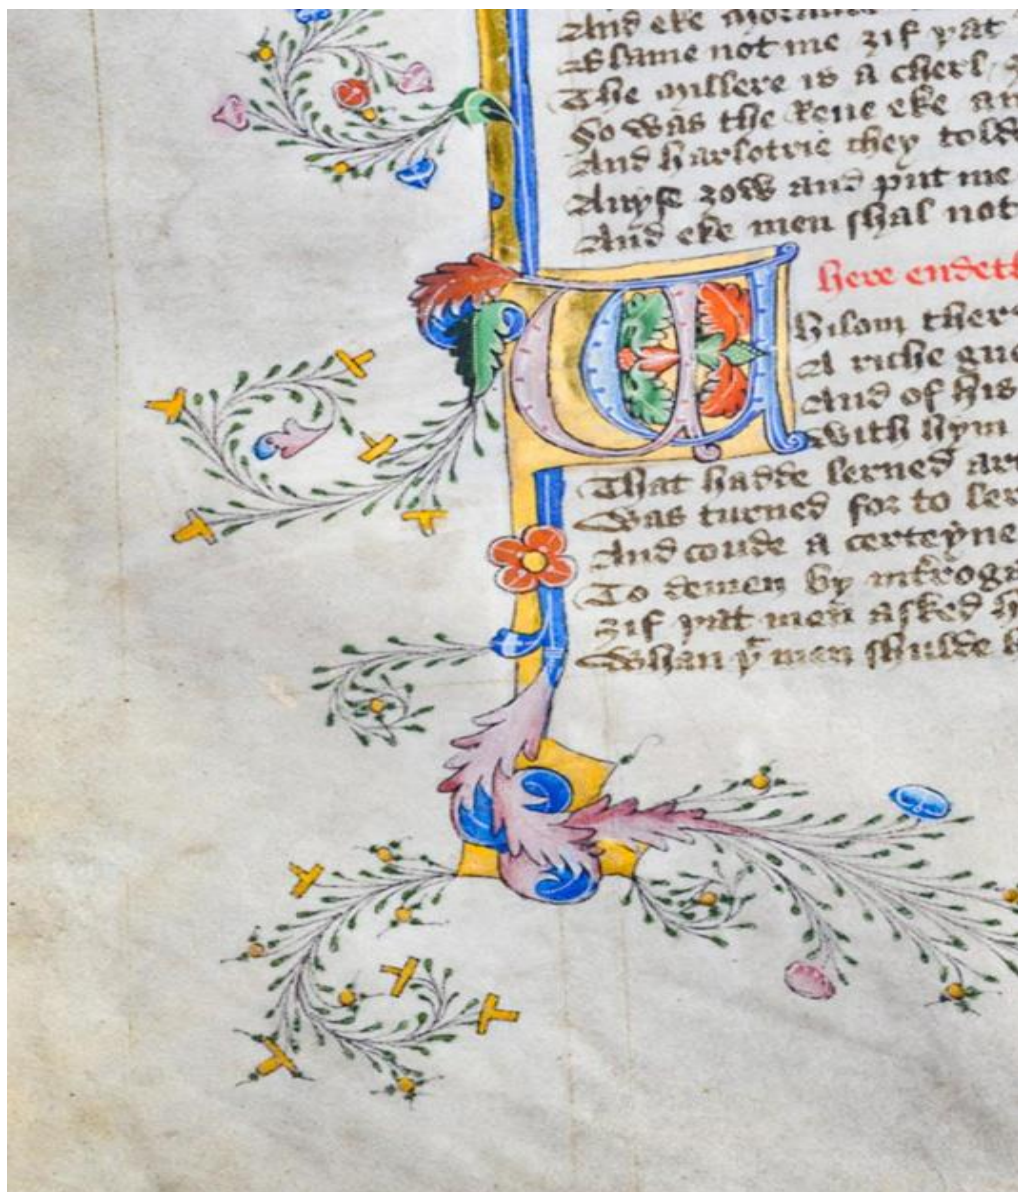 And eke
Blame not me ȝif þat
The Millere is a cherl
So was the Reue eke an
And harlotrie they told
Auyse ȝow and put me
And eke men shal not
here endeth
Whilom ther
A riche gno
And of his
With hym
That hadde lerned ar
Was turned for to ler
And coude a certeyne
To demen by introga
ȝif þat men asked h
Whan þt men shulde h